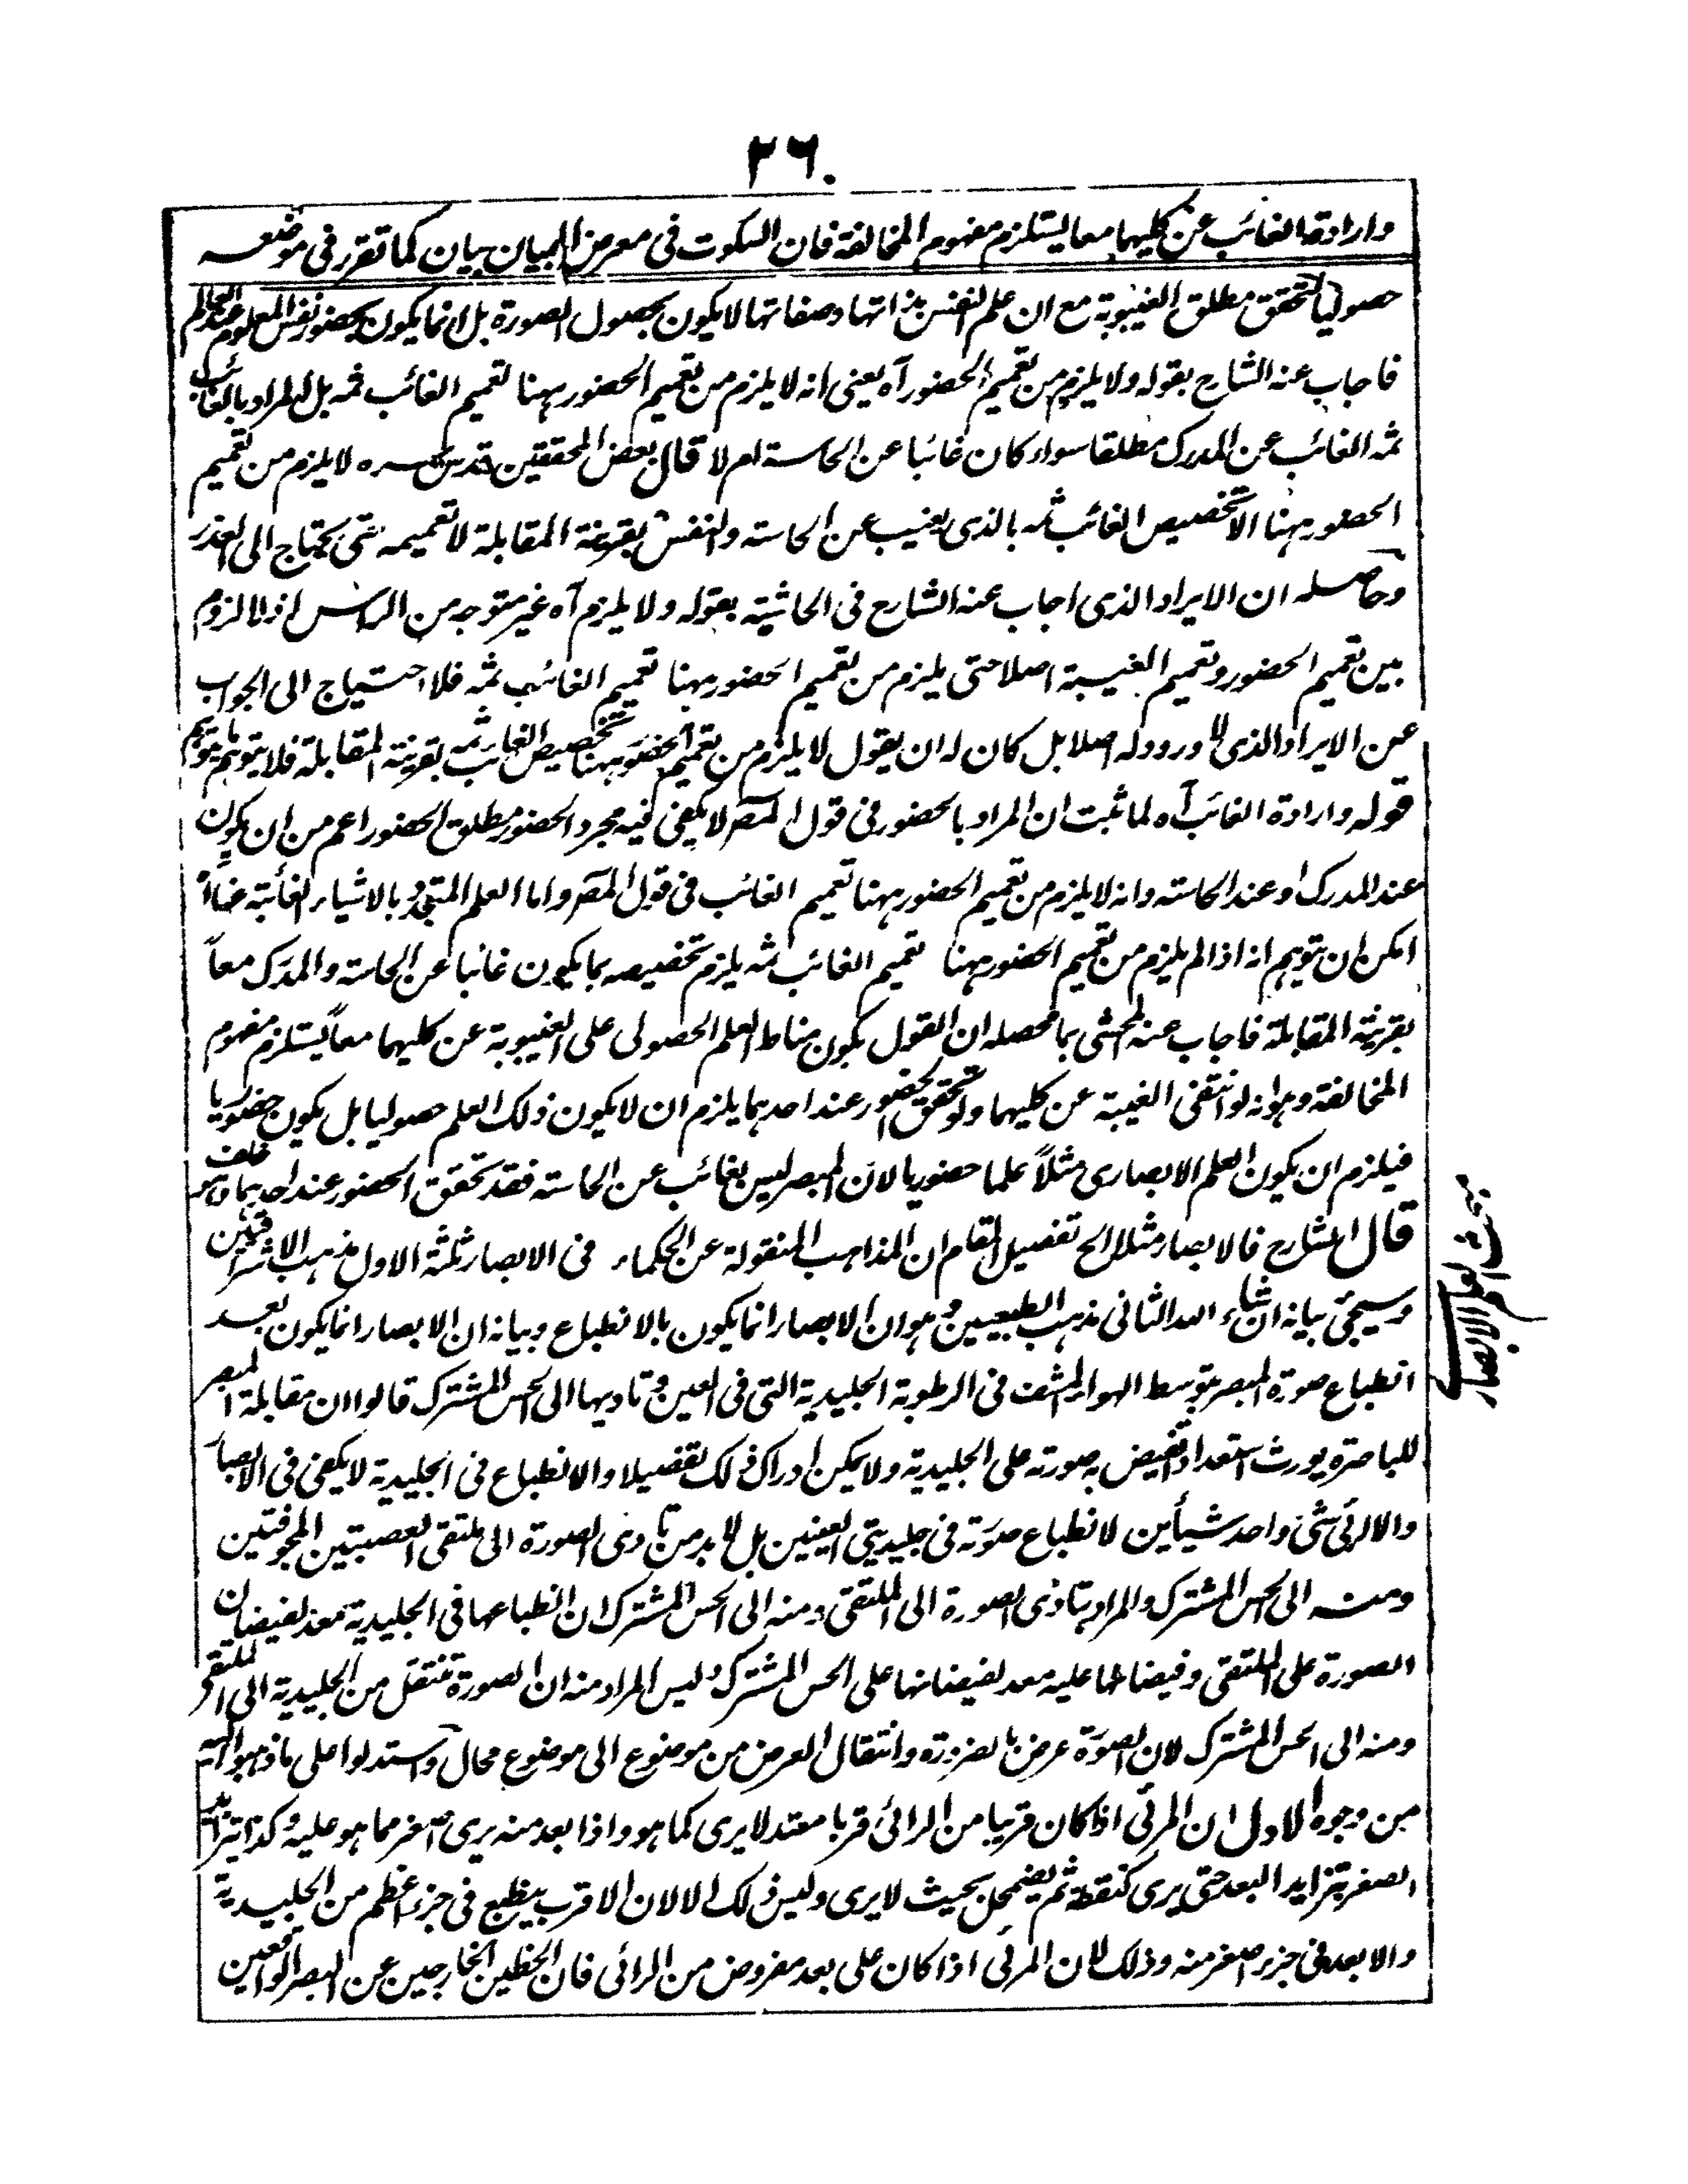 ٢٦٠
وارادة الغائب عن كليهما معا يستلزم مفهوم المخالفة فان السكوت فى معرض البيان بيان كما تقرر فى موضعه
حصوليا لتحقق مطلق الغيبوبة مع ان علم النفس بذاتها وصفاتها لا يكون بحصول الصورة بل انما يكون بحضور نفس المعلوم عند العالم
فاجاب عنه الشارح بقوله ولا يلزم من تعميم الحضور آه يعنى انه لا يلزم من تعميم الحضور ههنا تعميم الغائب ثمه بل المراد بالغائب
ثمه الغائب عن المدرك مطلقا سواء كان غائبا عن الحاسة ام لا قال بعض المحققين قدس سره لا يلزم من تعميم
الحضور ههنا الا تخصيص الغائب ثمه بالذى يغيب عن الحاسة والنفس بقرينة المقابلة لا تعميمه حتى يحتاج الى العذر
وحاصله ان الايراد الذى اجاب عنه الشارح فى الحاشية بقوله ولا يلزم آه غير متوجه من الراس اذ لا لزوم
بين تعميم الحضور وتعميم الغيبة اصلا حتى يلزم من تعميم الحضور ههنا تعميم الغائب ثمه فلا احتياج الى الجواب
عن الايراد الذى لا ورود له اصلا بل كان له ان يقول لا يلزم من تعميم الحضور ههنا تخصيص الغائب ثمه بقرينة المقابلة فلا يتوهم
قوله وارادة الغائب آه لما ثبت ان المراد بالحضور فى قول المصر لا يكفى فيه مجرد الحضور مطلق الحضور اعم من ان يكون
عند المدرك او عند الحاسة وانه لا يلزم من تعميم الحضور ههنا تعميم الغائب فى قول المصر واما العلم المتجدد بالاشياء الغائبة عنا آه
امكن ان يتوهم انه اذا لم يلزم من تعميم الحضور ههنا تعميم الغائب ثمه يلزم تخصيصه بما يكون غائبا عن الحاسة والمدرك معاً
بقرينة المقابلة فاجاب عنه المحشى بما محصله ان القول بكون مناط العلم الحصولى على الغيبوبة عن كليهما معاً يستلزم مفهوم
المخالفة وهو انه لو انتفى الغيبة عن كليهما وتحقق الحضور عند احدهما يلزم ان لا يكون ذلك العلم حصوليا بل يكون حضوريا
فيلزم ان يكون العلم الابصارى مثلاً علما حضوريا لان المبصر ليس بغائب عن الحاسة فقد تحقق الحضور عند احدهما وهو خلف
قال الشارح فالابصار مثلا الخ تفصيل المقام ان المذاهب المنقولة عن الحكماء فى الابصار ثلثة الاول مذهب الاشراقيين
وسيجئ بيانه ان شاء الله الثانى مذهب الطبيعيين وهو ان الابصار انما يكون بالانطباع وبيانه ان الابصار انما يكون بعد
انطباع صورة المبصر بتوسط الهواء المشف فى الرطوبة الجليدية التى فى العين وتاديها الى الحس المشترك قالوا ان مقابلة المبصر
للباصرة يورث استعداداً تفيض به صورته على الجليدية ولا يمكن ادراك ذلك تفصيلا والانطباع فى الجليدية لا يكفى فى الابصار
والا لرئى شئ واحد شيأين لانطباع صورته فى جليديتى العينين بل لا بد من تادى الصورة الى ملتقى العصبتين المجوفتين
ومنه الى الحس المشترك والمراد بتادى الصورة الى الملتقى ومنه الى الحس المشترك ان انطباعها فى الجليدية معد لفيضان
الصورة على الملتقى وفيضانها عليه معد لفيضانها على الحس المشترك وليس المراد منه ان الصورة تنتقل من الجليدية الى الملتقى
ومنه الى الحس المشترك لان الصورة عرض بالضرورة وانتقال العرض من موضوع الى موضوع محال واستدلوا على ما ذهبوا اليه
من وجوه الاول ان المرئى اذا كان قريبا من الرائى قربا معتدلا يرى كما هو واذا بعد منه يرى اصغر مما هو عليه وكذا يتزايد
الصغر بتزايد البعد حتى يرى كنقطة ثم يضمحل بحيث لا يرى وليس ذلك الا لان الاقرب ينطبع فى جزء اعظم من الجليدية
والابعد فى جزء اصغر منه وذلك لان المرئى اذا كان على بعد مفروض من الرائى فان الخطين الخارجين عن البصر الواقعين